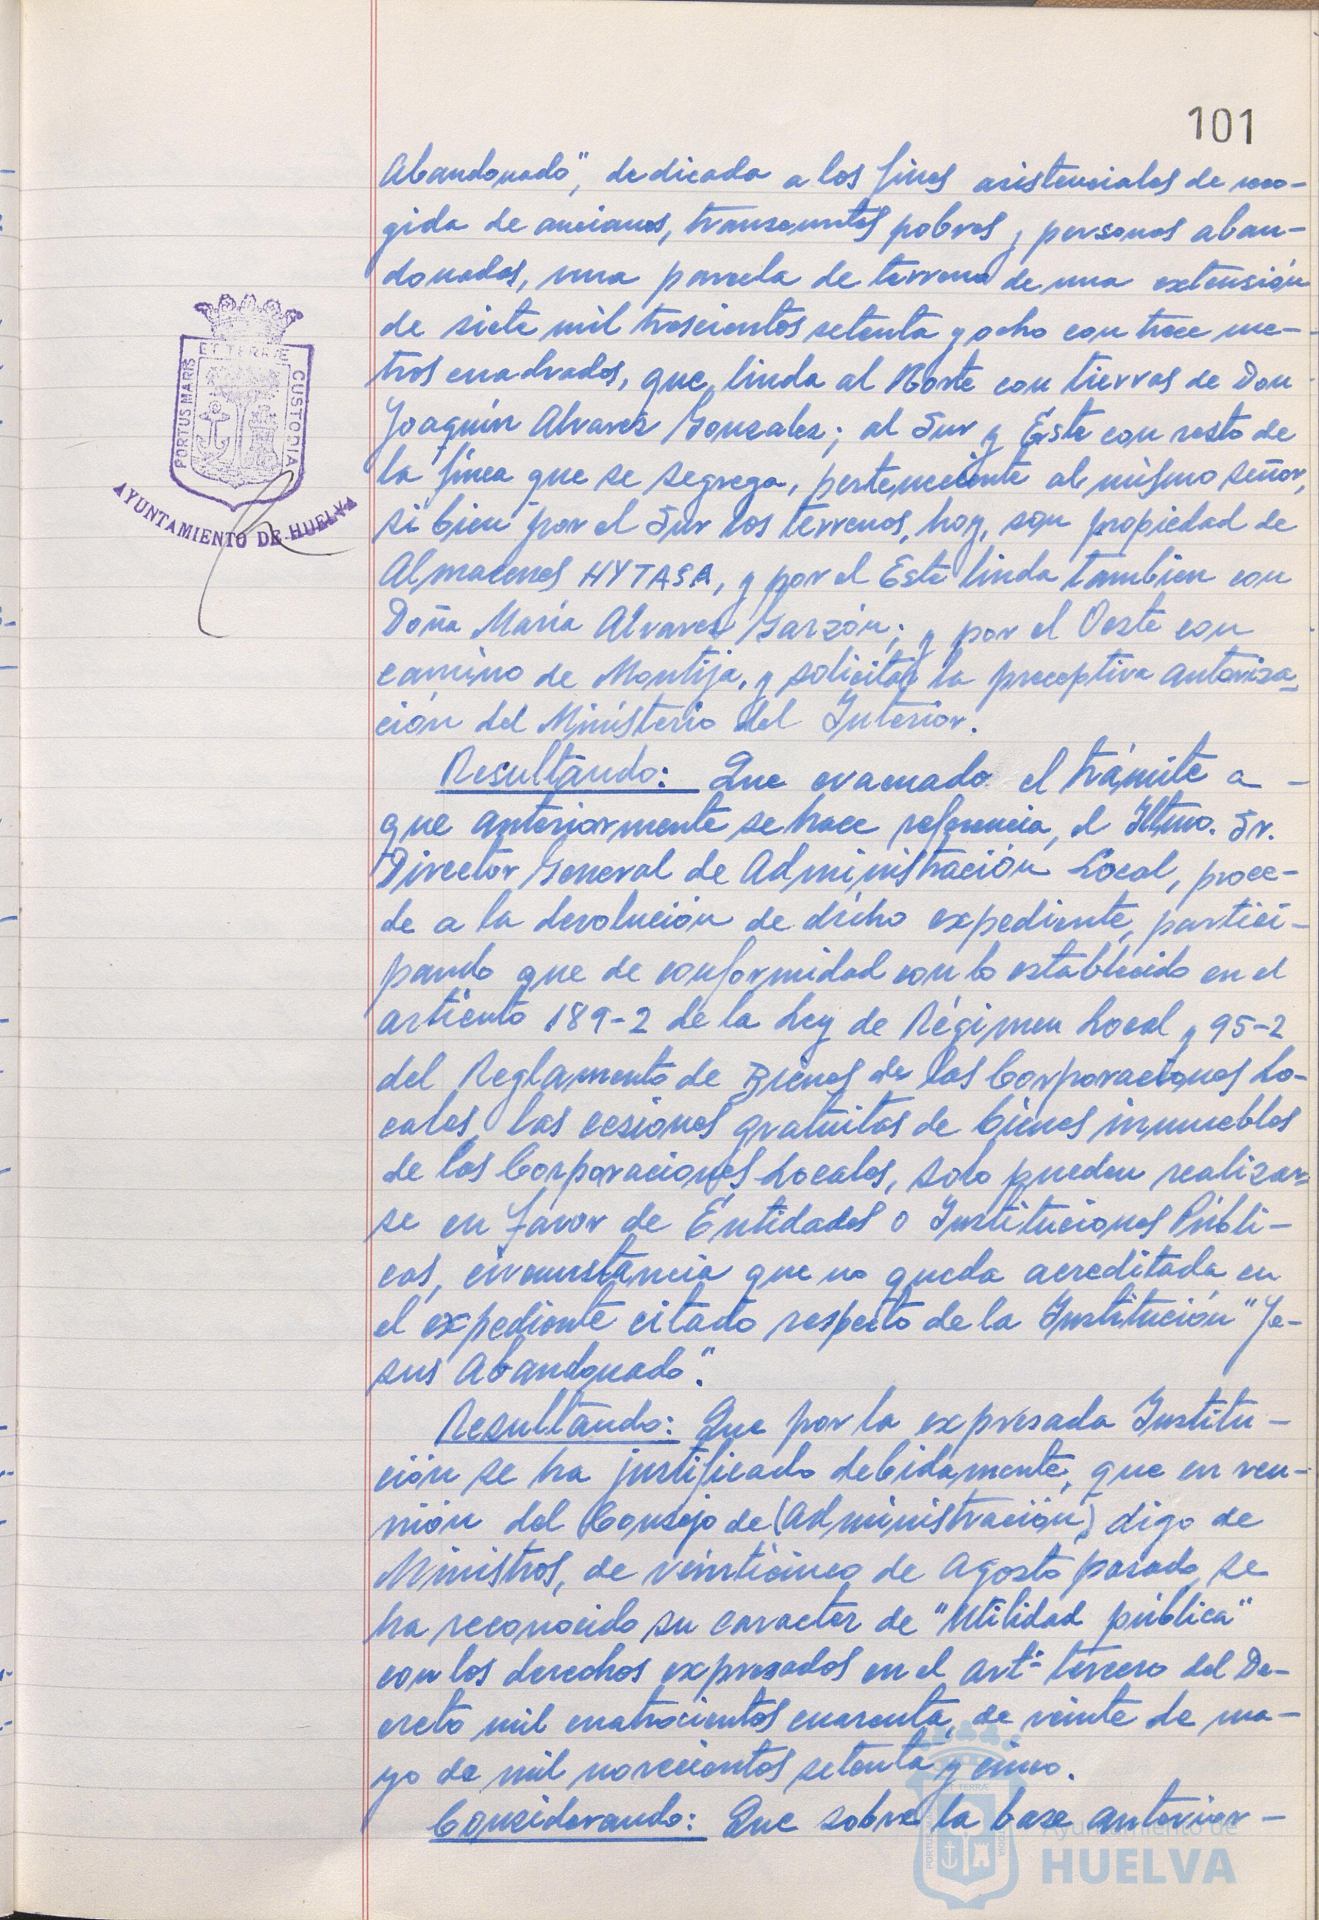 101
Abandonado", dedicada a los fines asistenciales de reco-
gida de ancianos, transeuntes pobres y personas aban-
donadas, una parcela de terreno de una extensión
de siete mil trescientos setenta y ocho con trece me-
tros cuadrados, que linda al Norte con tierras de Don
Joaquín Alvarez Gonzalez; al Sur y Este con resto de
la finca que se segrega, perteneciente al mismo señor,
si bien por el Sur los terrenos, hoy, son propiedad de
Almacenes HYTASA, y por el Este linda tambien con
Doña María Alvarez Garzón; y por el Oeste con
camino de Montija, y solicitar la preceptiva autoriza-
ción del Ministerio del Interior.
Resultando: Que evacuado el trámite a -
que anteriormente se hace referencia, el Iltmo. Sr.
Director General de Administración Local, proce-
de a la devolución de dicho expediente, partici-
pando que de conformidad con lo establecido en el
artículo 189-2 de la Ley de Régimen Local y 95-2
del Reglamento de Bienes de las Corporaciones Lo-
cales las cesiones gratuitas de bienes inmuebles
de las Corporaciones Locales, solo pueden realizar-
se en favor de Entidades o Instituciones Públi-
cas, circunstancia que no queda acreditada en
el expediente citado respecto de la Institución "Je-
sus Abandonado".
Resultando: Que por la expresada Institu-
ción se ha justificado debidamente, que en reu-
nión del Consejo de (Administración) digo de
Ministros, de veinticinco de Agosto pasado, se
ha reconocido su caracter de "Utilidad pública"
con los derechos expresados en el artº tercero del De-
creto mil cuatrocientos cuarenta, de veinte de ma-
yo de mil novecientos setenta y cinco.
Considerando: Que sobre la base anterior-
PORTUS MARIS ET TERRÆ CUSTODIA
AYUNTAMIENTO DE HUELVA
Ayuntamiento de
HUELVA